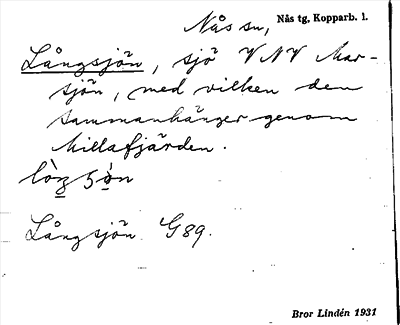 Nås sn, Nås tg, Kopparb. l.
Långsjön, sjö VNV Mar-
sjön, med vilken den
sammanhänger genom
Millafjärden.
Långsjön G89.
Bror Lindén 1931